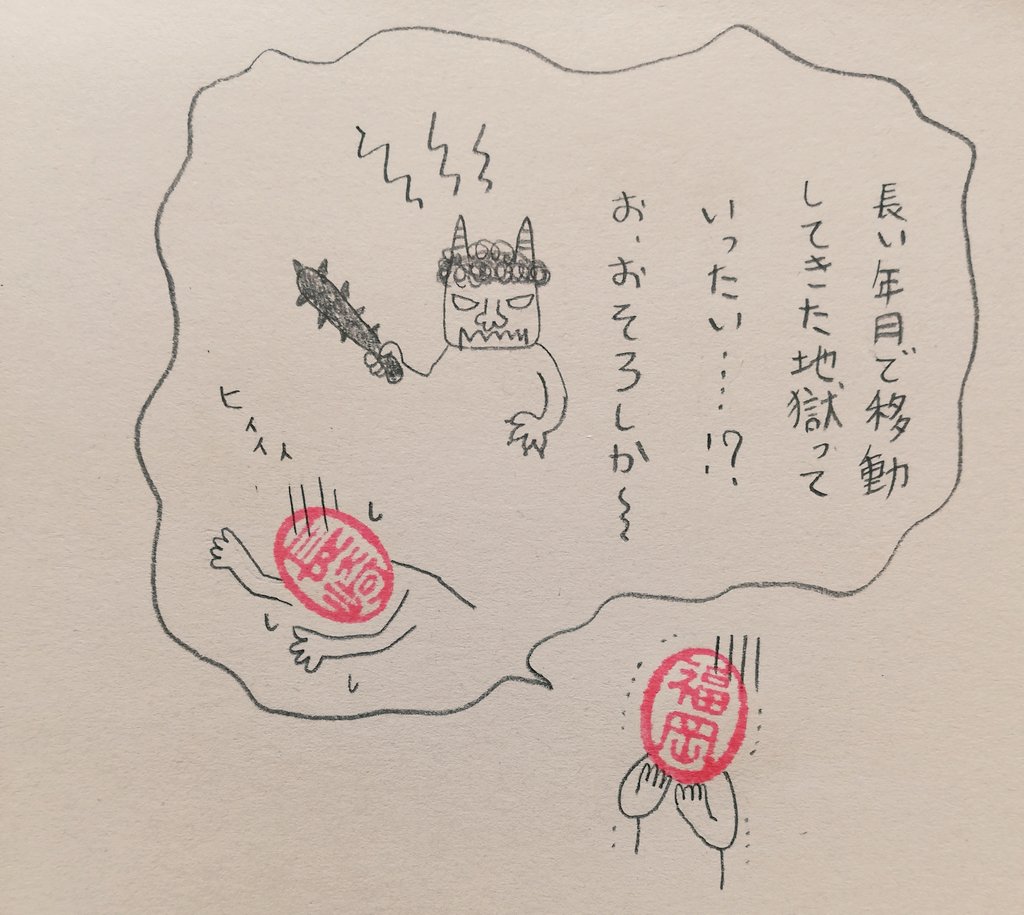 長い年月で移動
してきた地獄って
いったい……!?
お、おそろしか〜
ヒィィィ
福岡